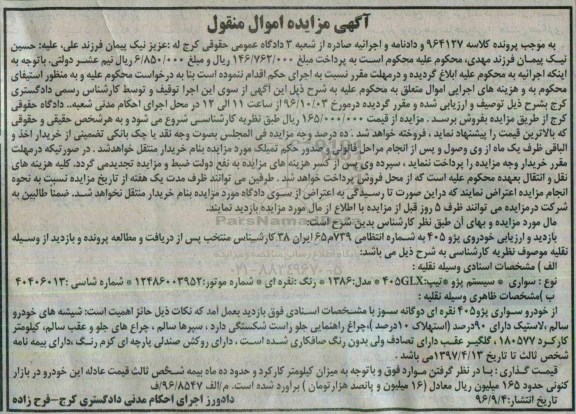 آگهی مزایده اموال منقول
به موجب پرونده کلاسه ۹۶۴۱۲۷ و دادنامه و اجرائیه صادره از شعبه ۳ دادگاه عمومی حقوقی کرج له :عزیز نیک پیمان فرزند علی، علیه: حسین
نیک پیمان فرزند مهدی، محکوم علیه محکوم است به پرداخت مبلغ ۱۴۶/۷۶۲/۰۰۰ ریال و مبلغ ۶/۸۵۰/۰۰۰ ریال نیم عشر دولتی. باتوجه به
اینکه اجرائیه به محکوم علیه ابلاغ گردیده و درمهلت مقرر نسبت به اجرای حکم اقدام ننموده است بنا به درخواست محکوم علیه و به منظور استیفای
محکوم به و هزینه های اجرایی اموال متعلق به محکوم علیه به شرح ذیل این آگهی از سوی این اجرا توقیف و توسط کارشناس رسمی دادگستری
کرج بشرح ذیل توصیف و ارزیابی شده و مقرر گردیده درمورخ ۹۶/۱۰/۰۳ از ساعت ۱۱ الی ۱۲ در محل اجرای احکام مدنی شعبه.. دادگاه حقوقی
کرج از طریق مزایده بفروش برسد. مزایده از قیمت ۱۶۵/۰۰۰/۰۰۰ ریال طبق نظریه کارشناسی شروع می شود و به هرشخص حقیقی و حقوقی
که بالاترین قیمت را پیشنهاد نماید ، فروخته خواهد شد . ده درصد وجه مزایده فی المجلس بصوت وجه نقد یا چک بانکی تضمینی از خریدار اخذ و
الباقی ظرف یک ماه از وی وصول و پس از انجام مراحل قانونی و صدور حکم تملیک مورد مزایده بنام خریدار منتقل خواهدشد . در صورتیکه درمهلت
مقرر خریدار وجه مزایده را پرداخت ننماید ، سپرده وی پس از کسر هزینه های مزایده به نفع دولت ضبط و مزایده تجدیدمی گردد. کلیه هزینه های
نقل و انتقال بعهده محکوم علیه است که از محل فروش پرداخت خواهد شد . طرفین می توانند ظرف مدت یک هفته از تاریخ مزایده نسبت به نحوه
انجام مزایده اعتراض نمایند که دراین صورت تا رسیدگی به اعتراض از سوی دادگاه مورد مزایده بنام خریدار منتقل نخواهد شد. ضمنا طالبین به
شرکت درمزایده می توانند ظرف ۵ روز قبل از مزایده با اطلاع از مال مورد مزایده بازدید نمایند.
مال مورد مزایده و بهای آن طبق نظر کارشناس بدین شرح است:
بازدید و ارزیابی خودروی پژو ۴۰۵ به شماره انتظامی ۷۳۹م۶۵ ایران ۳۸ کارشناس منتخب پس از دریافت و مطالعه پرونده و بازدید از وسیله
نقلیه موصوف نظریه کارشناسی به شرح ذیل می باشد:
الف ) مشخصات اسنادی وسیله نقلیه :
نوع : سواری * سیستم پژو *تیپ:۴۰۵GLX * مدل:۱۳۸۶ * رنگ :نقره ای * شماره موتور:۱۲۴۸۶۰۰۳۹۵۲ * شماره شاسی :۴۰۴۰۶۰۱۳
ب )مشخصات ظاهری وسیله نقلیه :
از خودرو سواری پژو۴۰۵ نقره ای دوگانه سوز با مشخصات اسنادی فوق بازدید بعمل آمد که نکات ذیل حائز اهمیت است: شیشه های خودرو
سالم ،لاستیک دارای ۹۰درصد (استهلاک ۱۰درصد )،چراغ راهنمایی جلو راست شکستگی دارد ، سپرها سالم ، چراغ های جلو و عقب سالم، کیلومتر
کارکرد ۱۸۰۵۷۷ ، گلگیر عقب دارای تصادف ولی بدون رنگ صافکاری شده است ، دارای روکش صندلی پارچه ای کرم رنگ ،دارای بیمه نامه
شخص ثالث تا تاریخ ۱۳۹۷/۴/۱۳می باشد .
قیمت گذاری : بـا در نظر گرفتن موارد فوق و باتوجه به میزان کیلومتر کارکرد و حدود ده ماه بیمه شخص ثالث قیمت عادله این خودرو در بازار
کنونی حدود ۱۶۵ میلیون ریال معادل (۱۶ میلیون و پانصد هزارتومان ) برآورد شده است. م/الف ۹۶/۸۵۴۷/ف
تاریخ انتشار: ۹۶/۹/۴ دادورز اجرای احکام مدنی دادگستری کرج-فرح زاده
ParsNamadData
۰۲۱-۸۸۳۴۹۶۷۰-۵